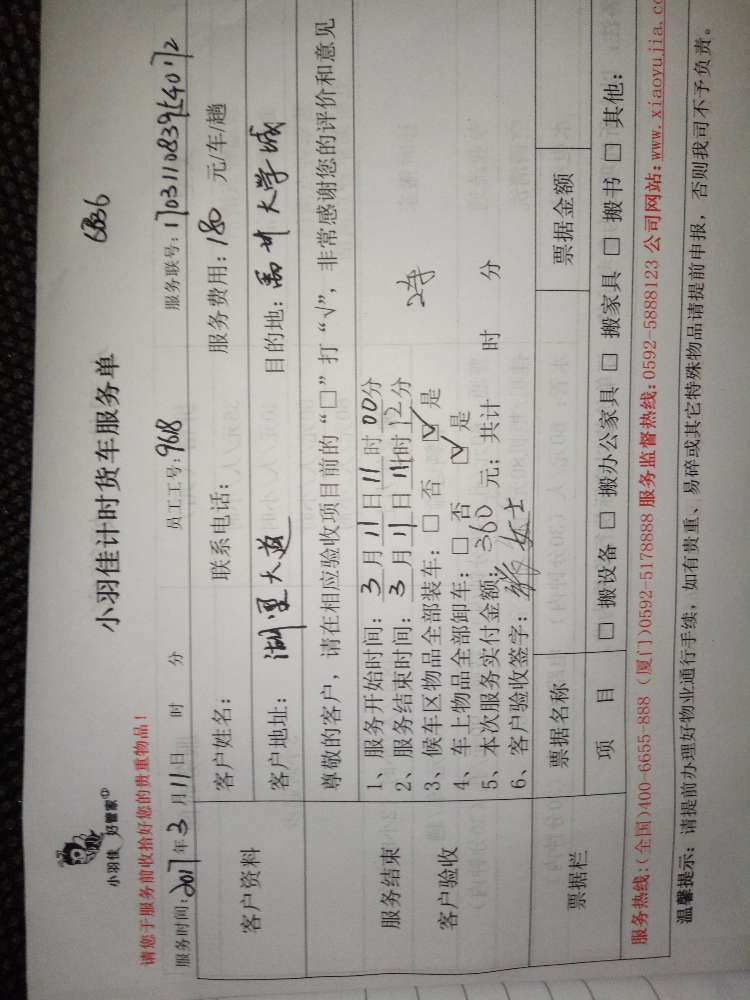 小羽佳 好管家
小羽佳计时货车服务单
6B36
请您于服务前收拾好您的贵重物品！
服务时间：2017年3月11日 时 分 员工工号：968 服务联号：17031108395401/2
客户资料
客户姓名： 联系电话： 服务费用：180 元/车/趟
客户地址：湖里大道 目的地：禹州大学城
尊敬的客户，请在相应验收项目前的“□”打“√”，非常感谢您的评价和意见
服务结束
客户验收
1、服务开始时间：3月11日11时00分
2、服务结束时间：3月11日 时12分
3、候车区物品全部装车：□ 否 ☑ 是
4、车上物品全部卸车：□ 否 ☑ 是
5、本次服务实付金额：360 元；共计 时 分
6、客户验收签字： 女士
票据栏
票据名称 票据金额
项 目 □ 搬设备 □ 搬办公家具 □ 搬家具 □ 搬书 □ 其他：
服务热线：(全国)400-6655-888 (厦门)0592-5178888 服务监督热线：0592-5888123 公司网站：www.xiaoyujia.co
温馨提示：请提前办理好物业通行手续，如有贵重、易碎或其它特殊物品请提前申报，否则我司不予负责。